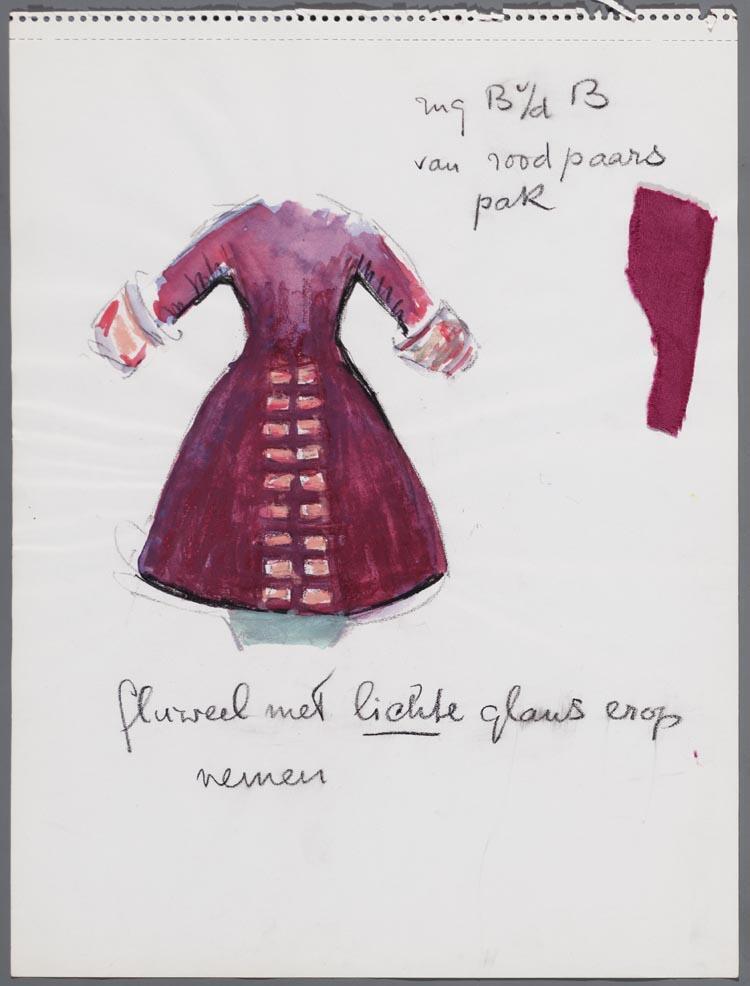 rug B v/d B
van rood paars
pak
fluweel met lichte glans erop
nemen